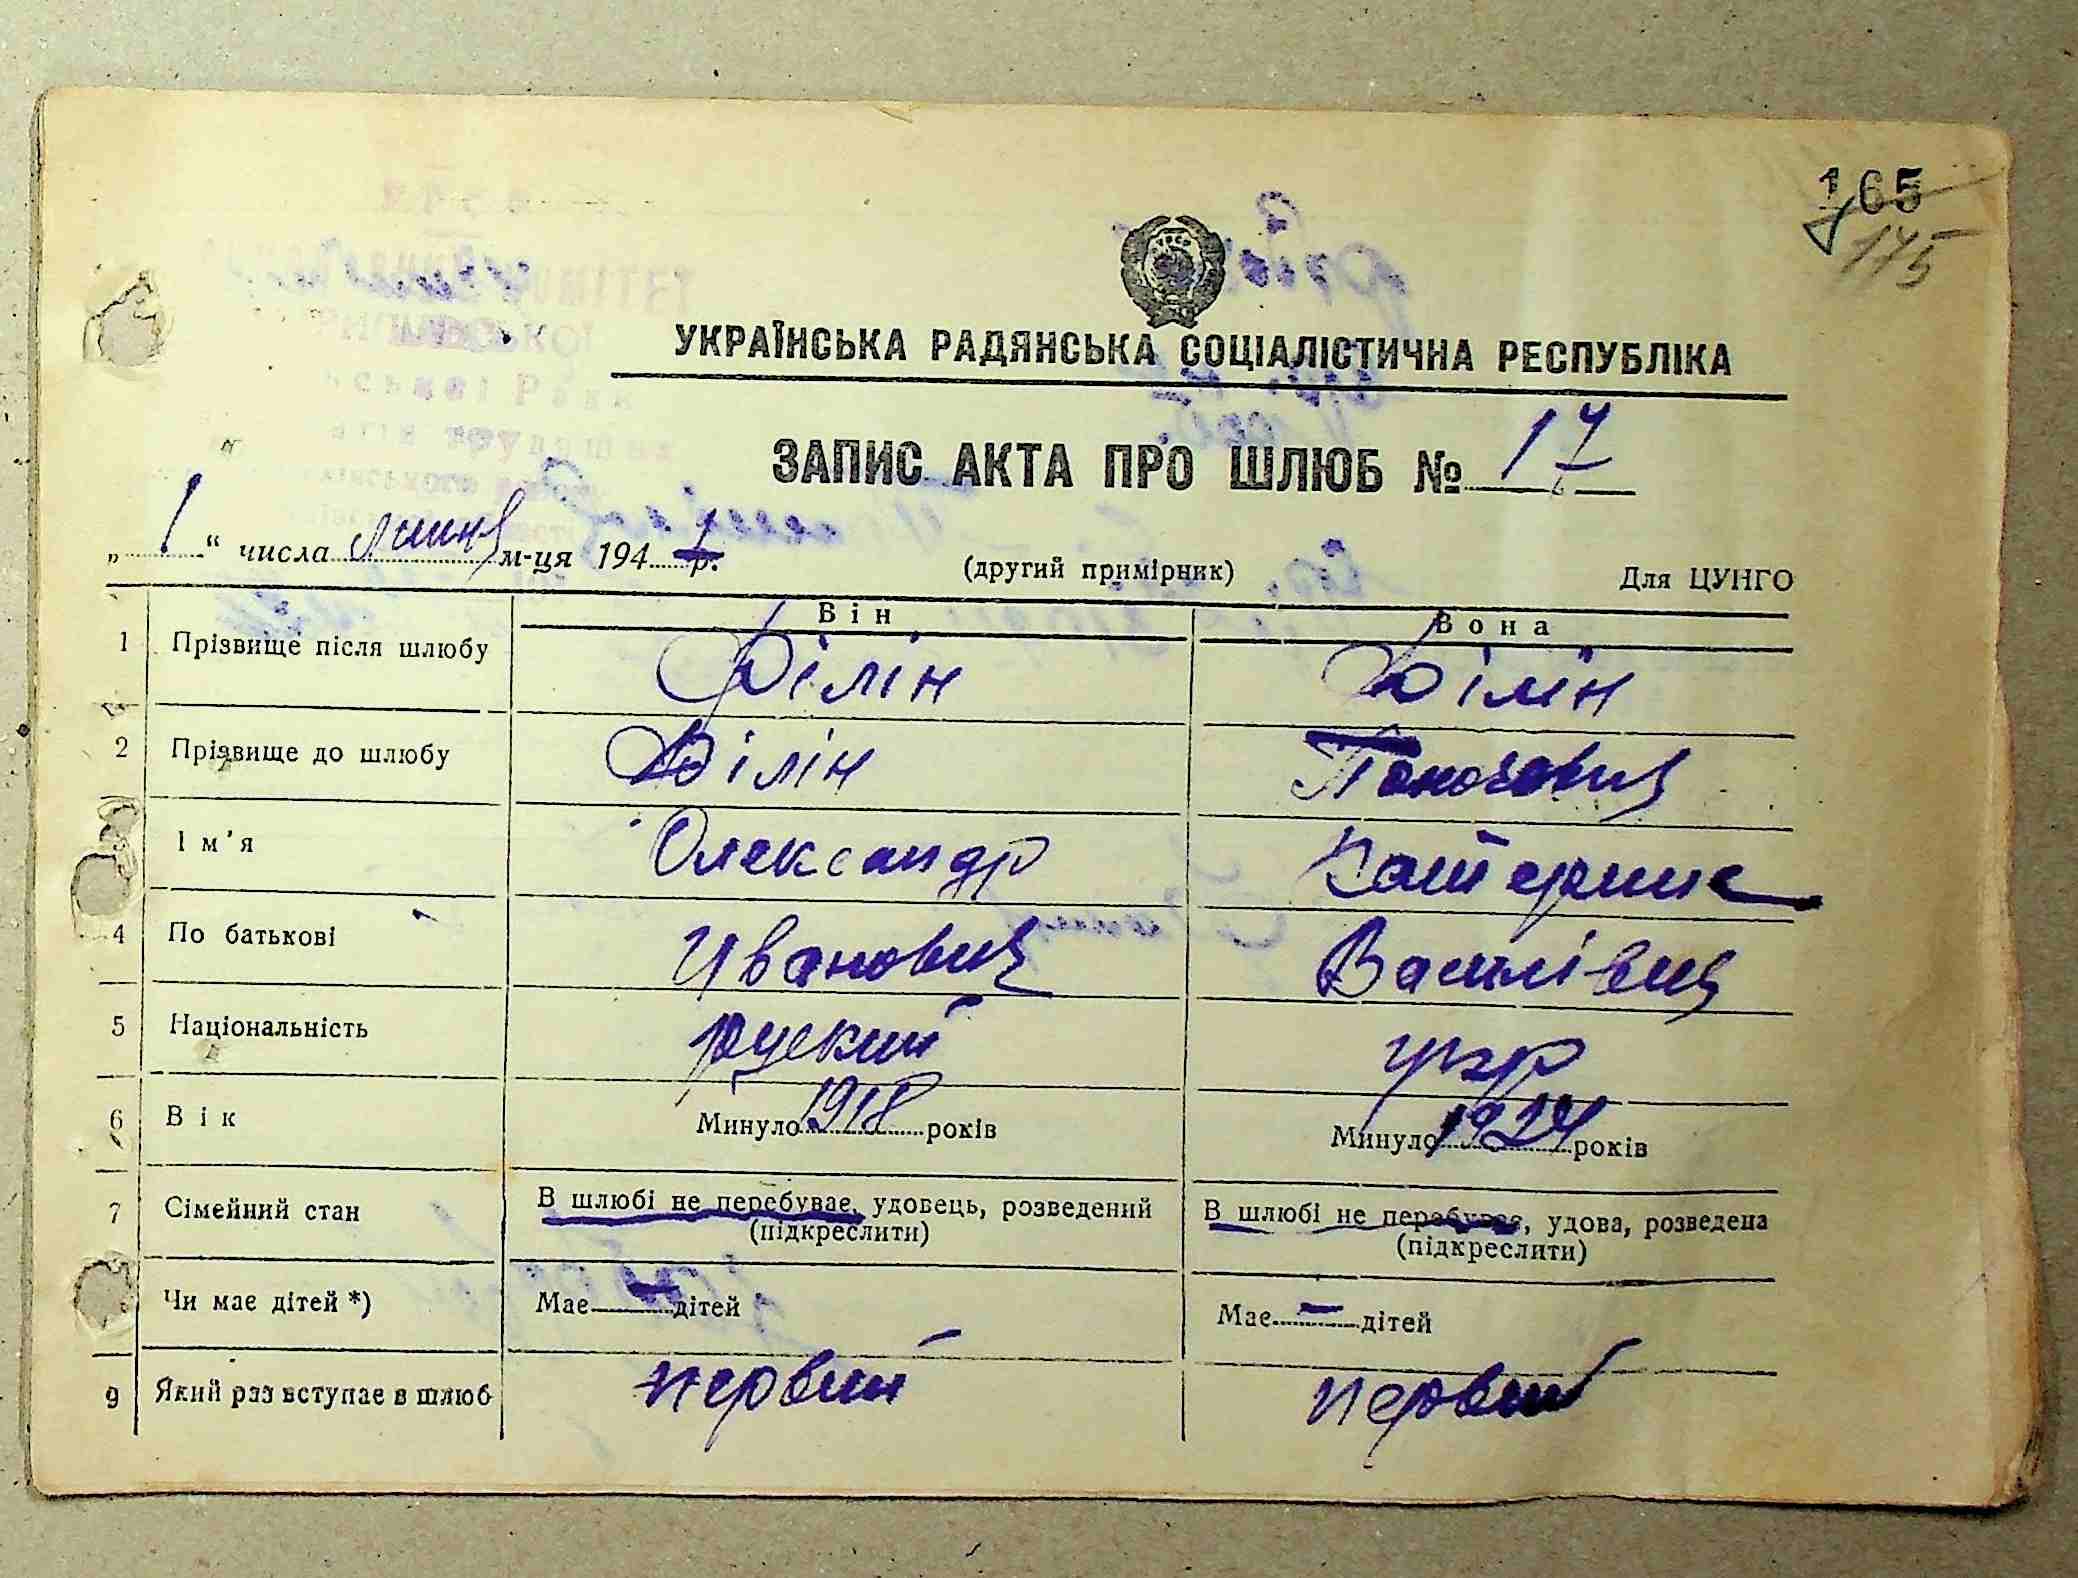 165
175
УКРАЇНСЬКА РАДЯНСЬКА СОЦІАЛІСТИЧНА РЕСПУБЛІКА
ЗАПИС АКТА ПРО ШЛЮБ № 17
„ 1 “ числа липня м-ця 194 р.
(другий примірник) Для ЦУНГО
Він Вона
1 Прізвище після шлюбу Філін Філін
2 Прізвище до шлюбу Філін
Ім'я Олександр Катерина
4 По батькові Иванович Василівна
5 Національність руский укр
6 Вік Минуло 1918 років Минуло 1924 років
7 Сімейний стан В шлюбі не перебуває, удовець, розведений В шлюбі не перебуває, удова, розведена
(підкреслити) (підкреслити)
Чи має дітей *) Має — дітей Має — дітей
9 Який раз вступає в шлюб первий первий